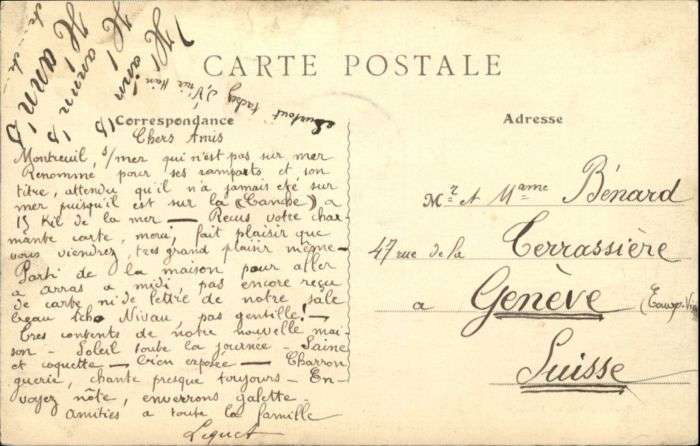 CARTE POSTALE
Correspondance
Adresse
Chers Amis
Montreuil, s/mer qui n'est pas sur mer
Renommé pour ses ramparts et son
titre, attendu qu'il n'a jamais été sur
mer puisqu'il est sur la (Canche) a
15 Kil de la mer — Reçus votre char-
mante carte, fait plaisir que
vous viendrez, tres grand plaisir même —
Parti de la maison pour aller
a arras a midi, pas encore reçu
de carte ni de lettre de notre sale
beau Niveau pas gentille! —
Tres contents de notre nouvelle mai-
son — Soleil toute la journée — Saine
et coquette — bien exposée —
guerie, chante presque toujours — En-
voyez nôte, enverrons galette —
amities a toute la famille
Mr et Mame Bénard
47 rue de la Terrassière
a Genève
Suisse